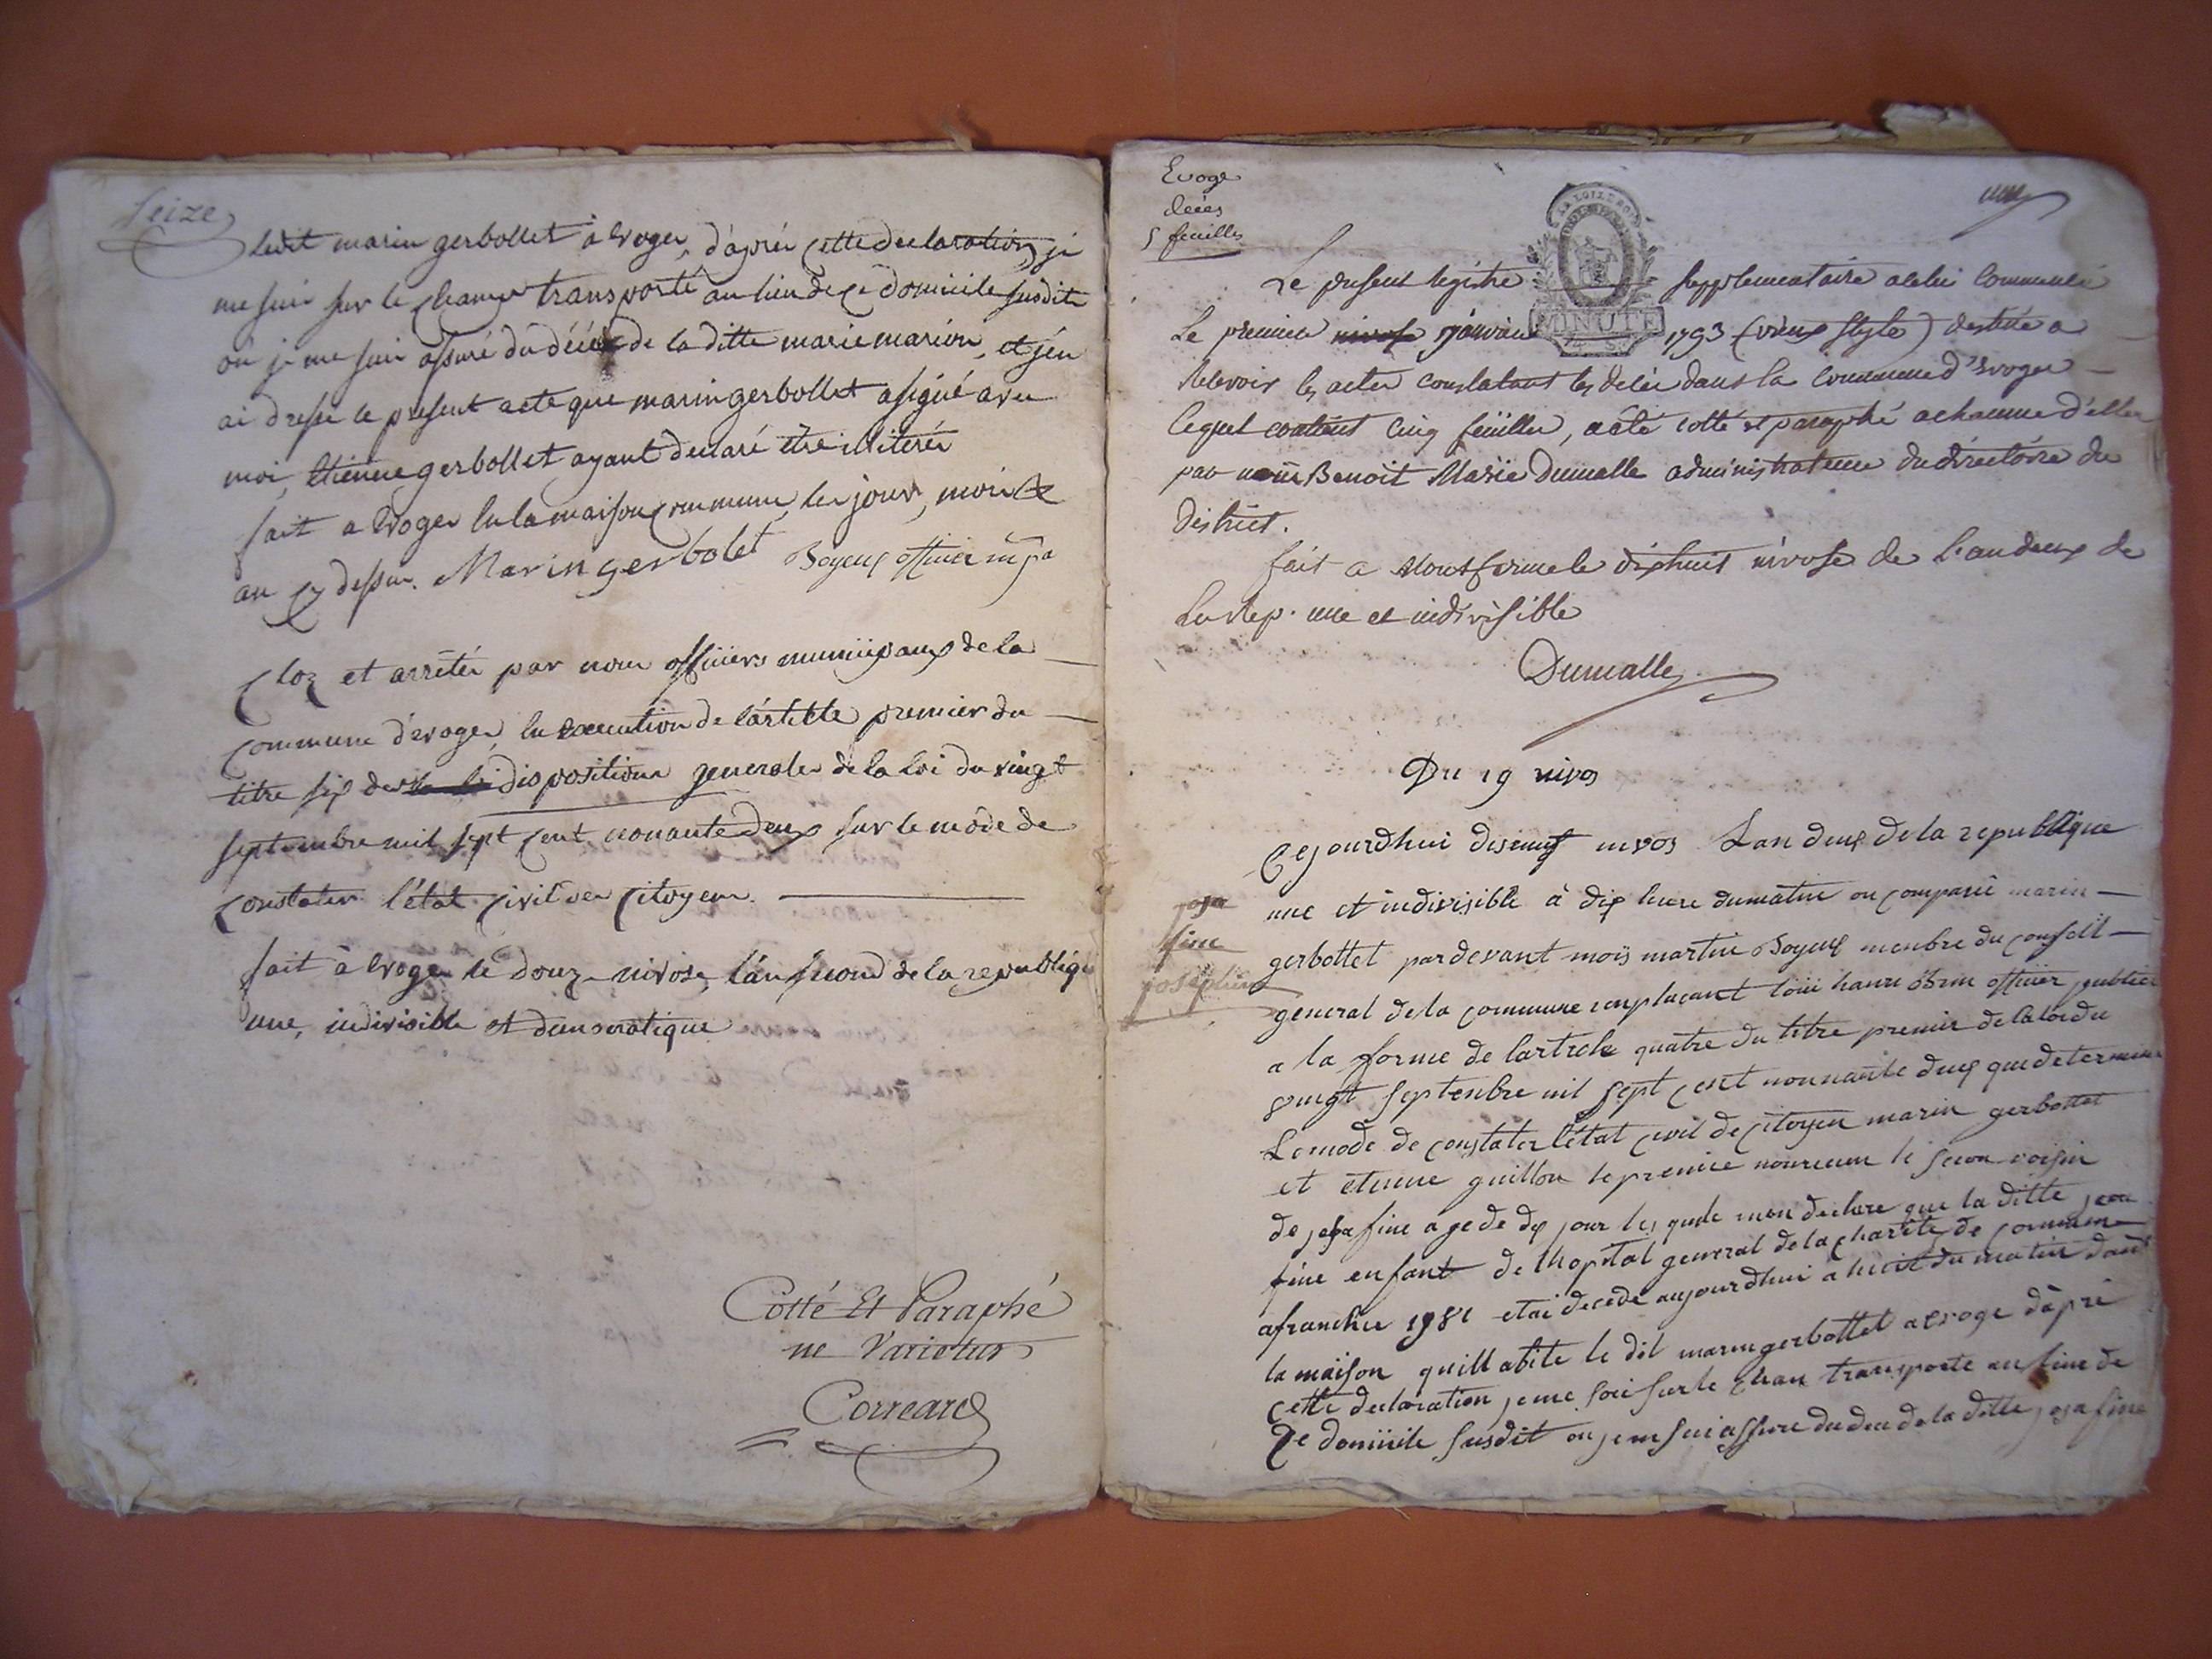 Seize
ledit marin gerbollet à Evoges, d'après cette declaration, je
me suis sur le champ transporté au lieu de ce domicile susdits
où je me suis assuré du décés de la ditte marie marion, et j'en
ai dressé le present acte que marin gerbollet a signé avec
moi, Etienne gerbollet ayant declaré être illiterés
fait a Evoges en la maison commune, les jour, mois &
an cy dessus. Marin gerbolet Boyeux officier
Cloz et arrêtés par nous officiers municipaux de la
commune d'evoges, en execution de l'article premier du
titre six des dispositions generales de la loi du vingt
septembre mil sept cent nonante deux sur le môde de
constater l'état civil des citoyens.
fait à Evoges le douze nivose, l'an second de la republiqe
une, indivisible et democratique
Cotté Et Paraphé
ne Varietur
Correard
Evoge
décès
5 feuilles
une
Le present registre supplementaire a celui commencé
MINUTE
le premier janvier 1793 (vieux style) destiné a
recevoir les actes constatans les décès dans la commune d'Evoges
lequel contient cinq feüilles, a été cotté et paraphé a chacune d'elles
par nous Benoit Marie Dumalle administrateur du directoire du
district.
fait a Montferme le dixhuit nivose de l'an deux de
la Rep. une et indivisible
Dumalle
Du 19 nivos
Cejourdhui disneuf nivos Lan deux de la republique
une et indivisible à dix heure du matin on comparu marin
josa
fine
josephine
gerbottet pardevant mois martin Boyeux menbre du conseil
general de la commune remplaçant officier public
a la forme de larticle quatre du titre premier de la loi du
vingt septenbre mil sept cent nonnante deux qui determine
Le mode de constater l'état civil de citoyen marin gerbottet
et etienne guillon le premier nouricier le secon voisin
de josafine age de dix jour les quels mon declare que la ditte josa
fine enfant de lhopital general de la charite de commune
afranchie 1981 etai decede aujourdhui a huit du matin dans
la maison quill abite le dit marin gerbottet a evoge dàpré
cette declaration je me soi sur le chan transporte au lieu de
Ce domicile susdit ou je me sui assure du dece de la ditte josafine